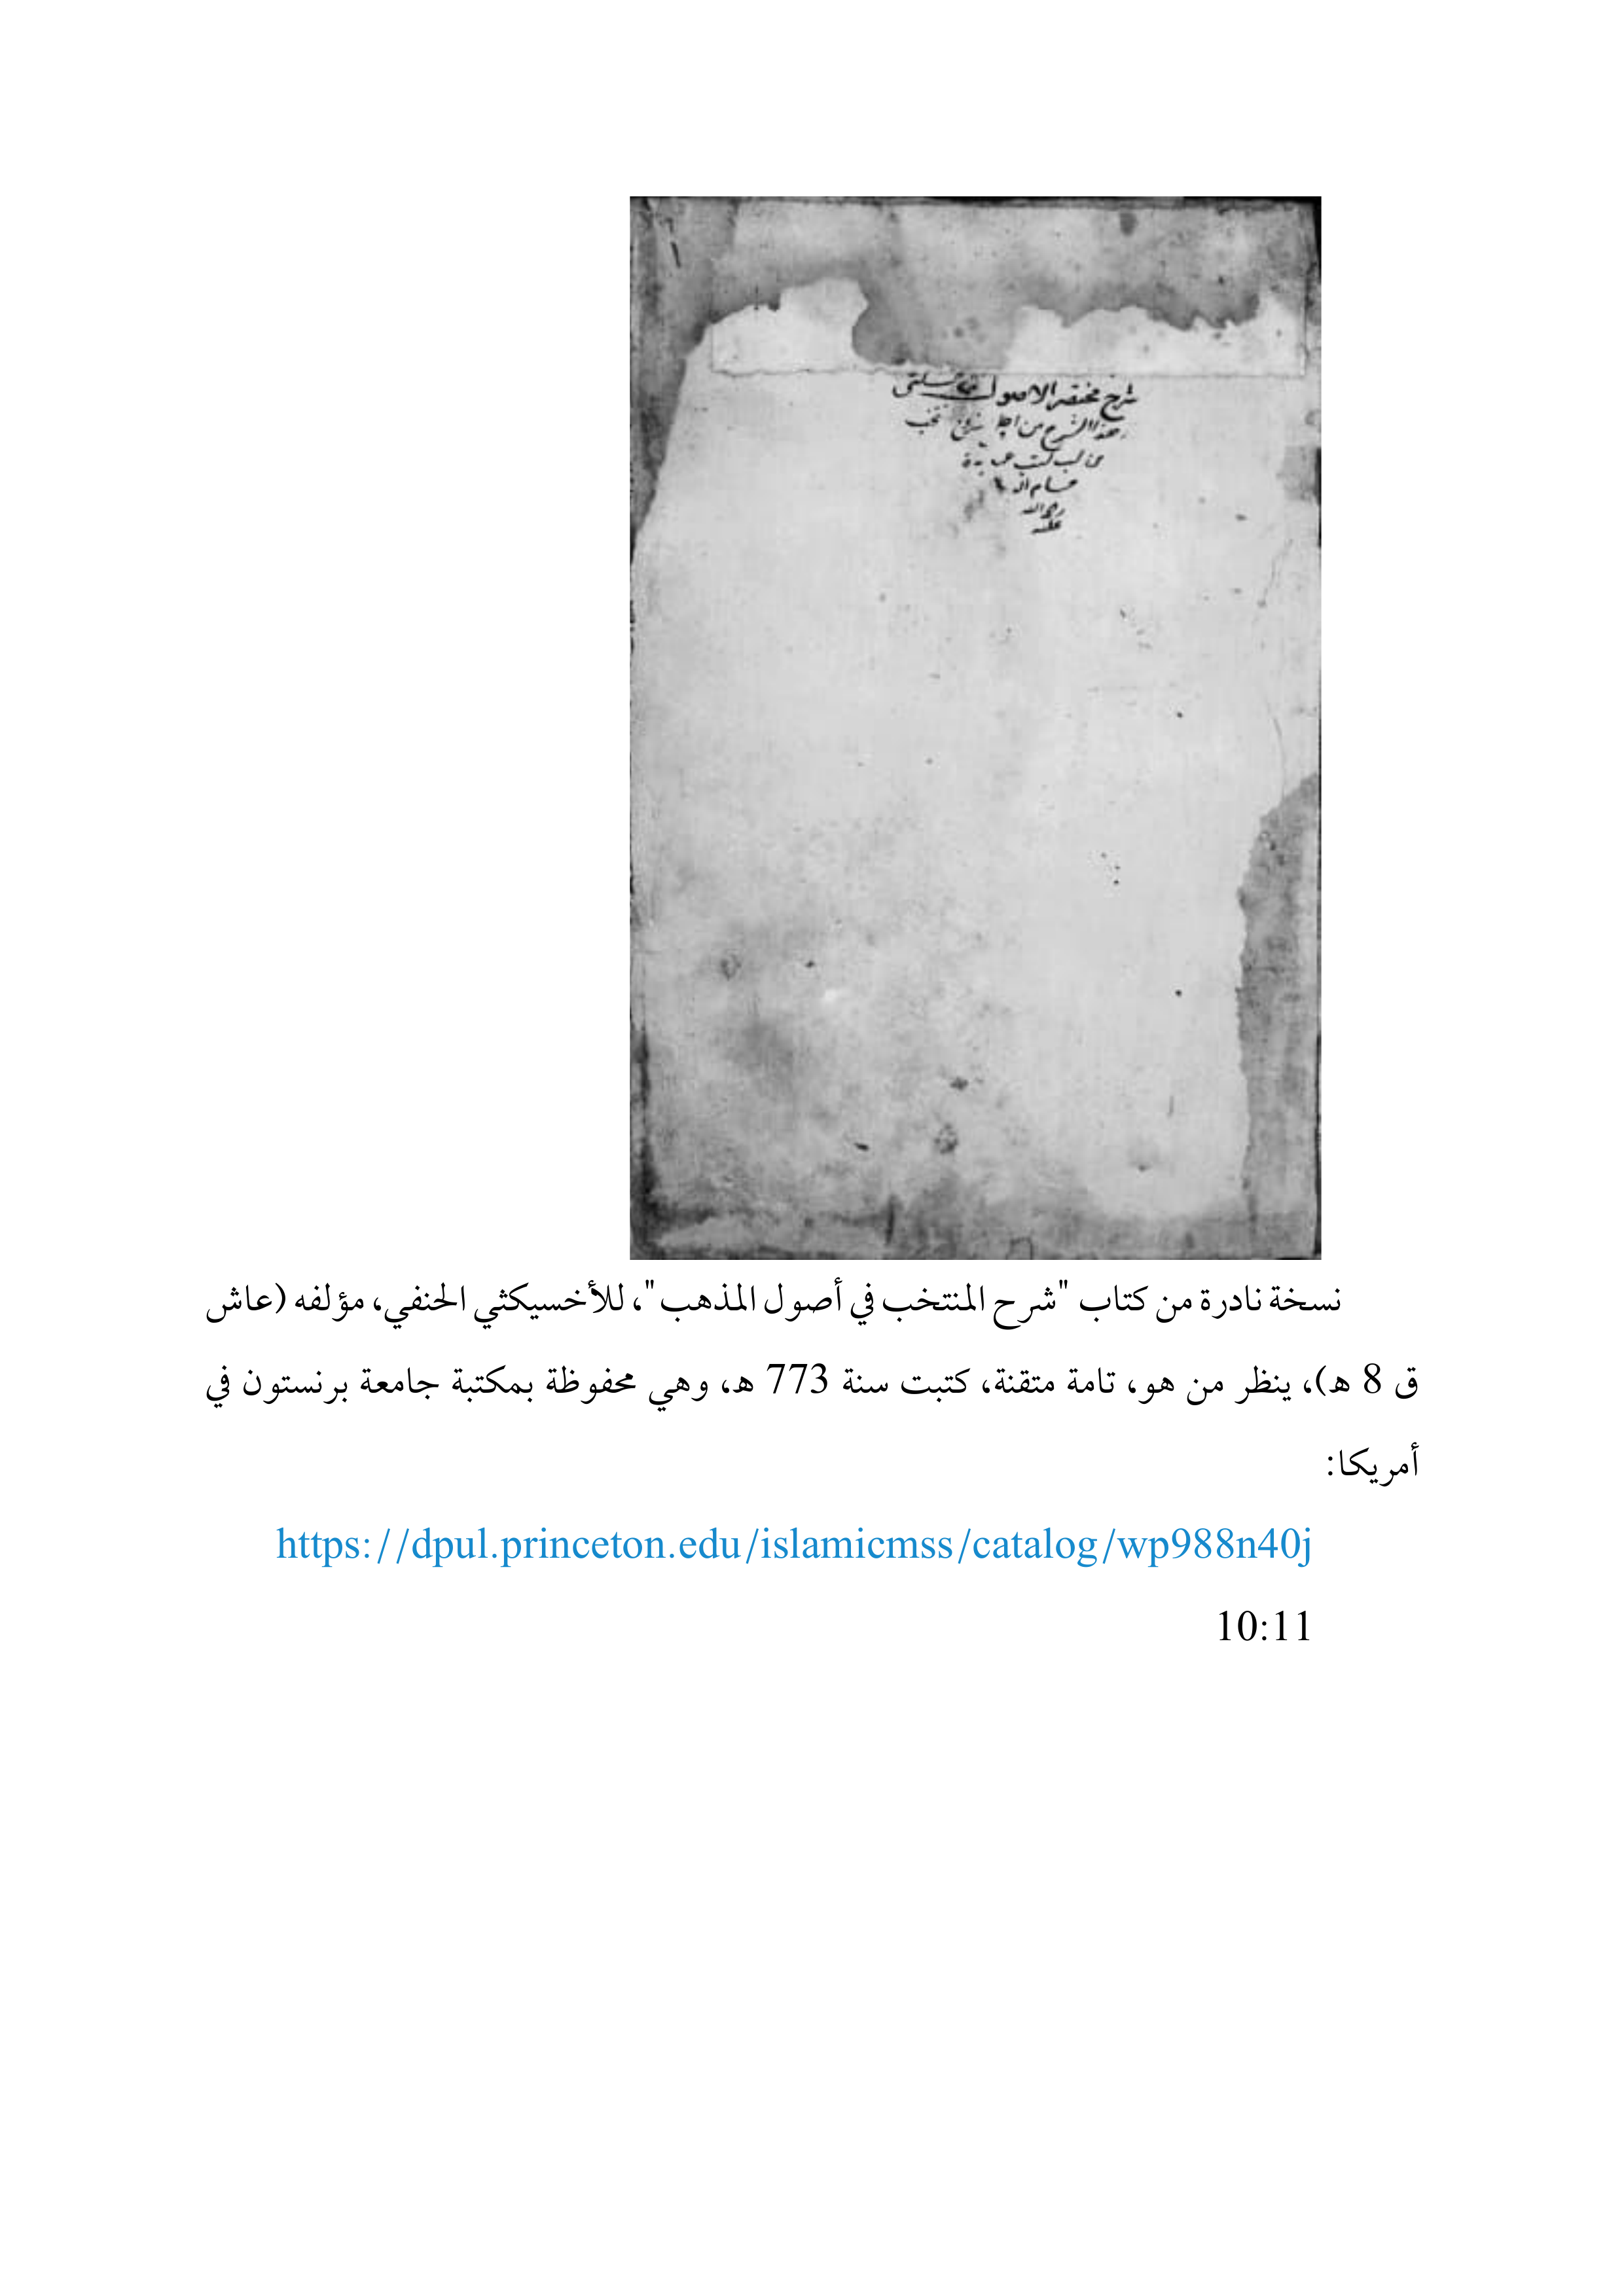 شرح مختصر الاصول
هذا الشرح من
حسام
رحمة الله
عليه
نسخة نادرة من كتاب "شرح المنتخب في أصول المذهب"، للأخسيكثي الحنفي، مؤلفه (عاش
ق 8 هـ)، ينظر من هو، تامة متقنة، كتبت سنة 773 هـ، وهي محفوظة بمكتبة جامعة برنستون في
أمريكا:
https://dpul.princeton.edu/islamicmss/catalog/wp988n40j
10:11